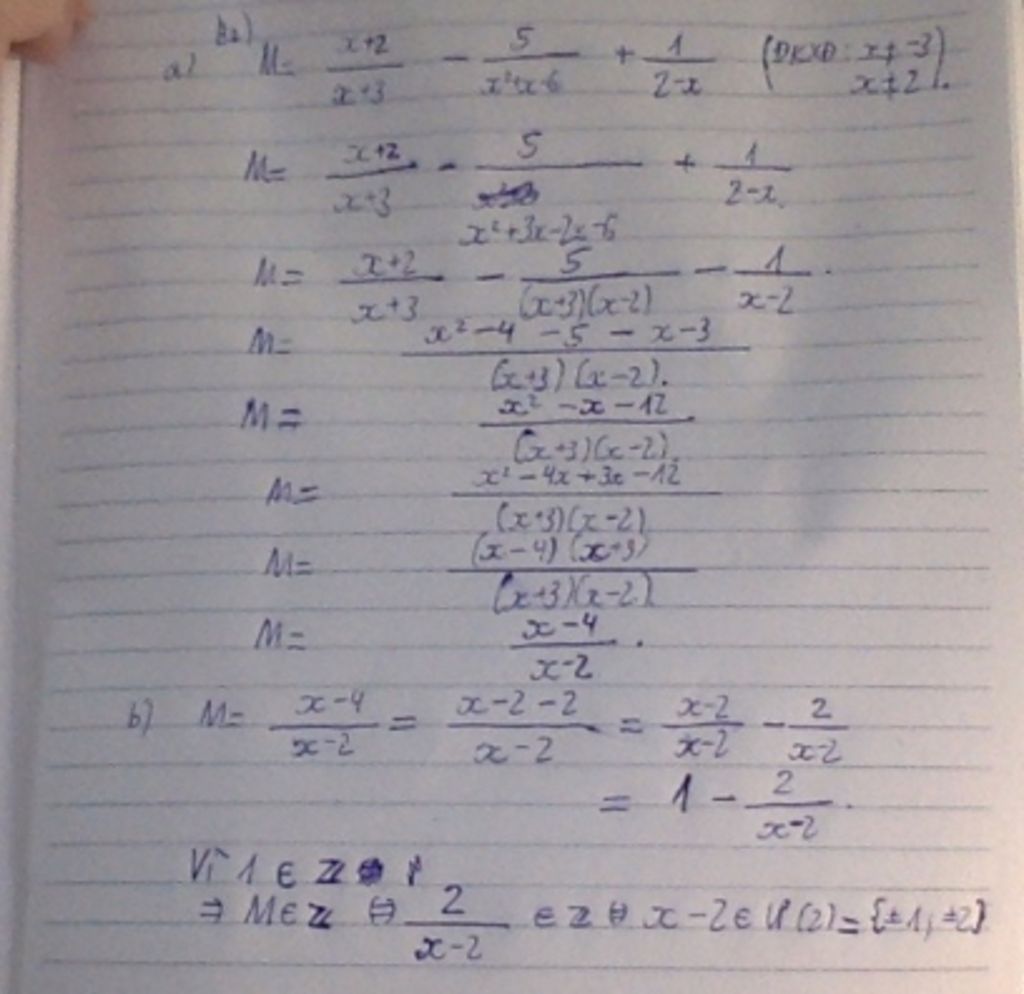 B2)
a) M= x+2/x+3 - 5/x²+x-6 + 1/2-x (ĐKXĐ: x≠-3 x≠2).
M= x+2/x+3 - 5/x²+3x-2x-6 + 1/2-x.
M= x+2/x+3 - 5/(x+3)(x-2) - 1/x-2.
M= x²-4-5-x-3/(x+3)(x-2).
M= x²-x-12/(x+3)(x-2).
M= x²-4x+3x-12/(x+3)(x-2)
M= (x-4)(x+3)/(x+3)(x-2)
M= x-4/x-2.
b) M= x-4/x-2 = x-2-2/x-2 = x-2/x-2 - 2/x-2
= 1 - 2/x-2.
Vì 1 ∈ Z
⇒ M∈Z ⇔ 2/x-2 ∈ Z ⇔ x-2 ∈ Ư(2)={±1; ±2}